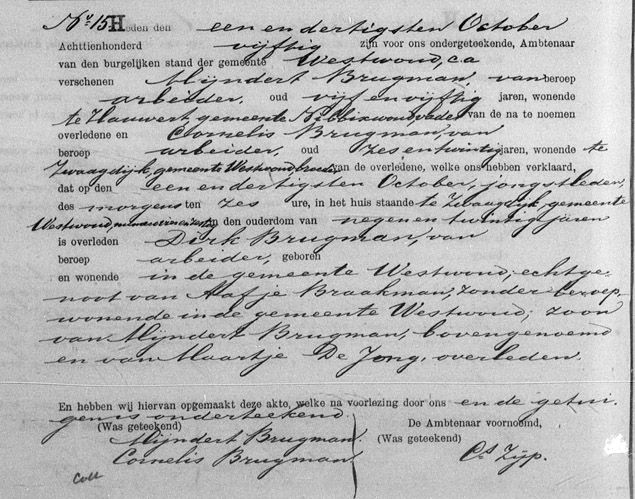 No. 15 Heden den een en dertigsten October
Achttienhonderd vijftig zijn voor ons ondergeteekende, Ambtenaar
van den burgelijken stand der gemeente Westwoud, c.a
verschenen Mijndert Brugman, van beroep
arbeider, oud vijf en vijftig jaren, wonende
te Hauwert, gemeente Nibbixwoud, vader van de na te noemen
overledene en Cornelis Brugman, van
beroep arbeider, oud zes en twintig jaren, wonende te
Zwaagdijk, gemeente Westwoud, broeder van de overledene, welke ons hebben verklaard,
dat op den een en dertigsten October, jongstleden,
des morgens ten zes ure, in het huis staande te Zwaagdijk, gemeente
Westwoud, nummer in den ouderdom van negen en twintig jaren
is overleden Dirk Brugman, van
beroep arbeider, geboren
en wonende in de gemeente Westwoud, echtge-
noot van Aafje Braakman, zonder beroep,
wonende in de gemeente Westwoud; zoon
van Mijndert Brugman, bovengenoemd
en van Maartje De Jong, overleden.
En hebben wij hiervan opgemaakt deze akte, welke na voorlezing door ons en de getui-
gen is onderteekend.
(Was geteekend)
Mijndert Brugman.
Cornelis Brugman
De Ambtenaar voornoemd,
(Was geteekend)
Cs Zijp.
Coll